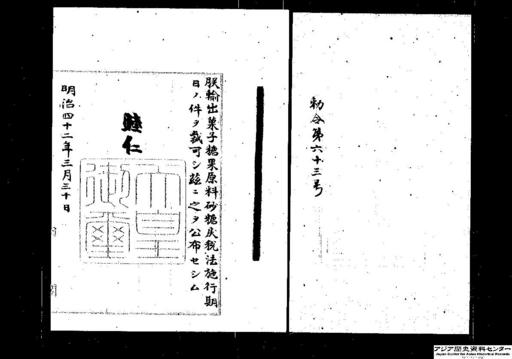 勅令第六十三号
朕輸出菓子糖果原料砂糖戻税法施行期
日ノ件ヲ裁可シ茲ニ之ヲ公布セシム
睦仁
天皇御璽
明治四十二年三月三十日
アジア歴史資料センター
Japan Center for Asian Historical Records